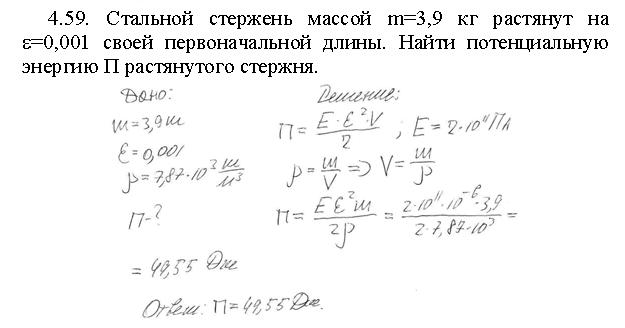 4.59. Стальной стержень массой m=3,9 кг растянут на
ε=0,001 своей первоначальной длины. Найти потенциальную
энергию П растянутого стержня.
Дано:
m=3,9 м
ε=0,001
ρ=7,87·10³ m/м³
П-?
Решение:
П = E·ε²·V/2 ; E=2·10¹¹ Па
ρ = m/V ⇒ V = m/ρ
П = Eε²m/2ρ = 2·10¹¹·10⁻⁶·3,9/2·7,87·10³ =
= 49,55 Дж
Ответ: П=49,55 Дж.